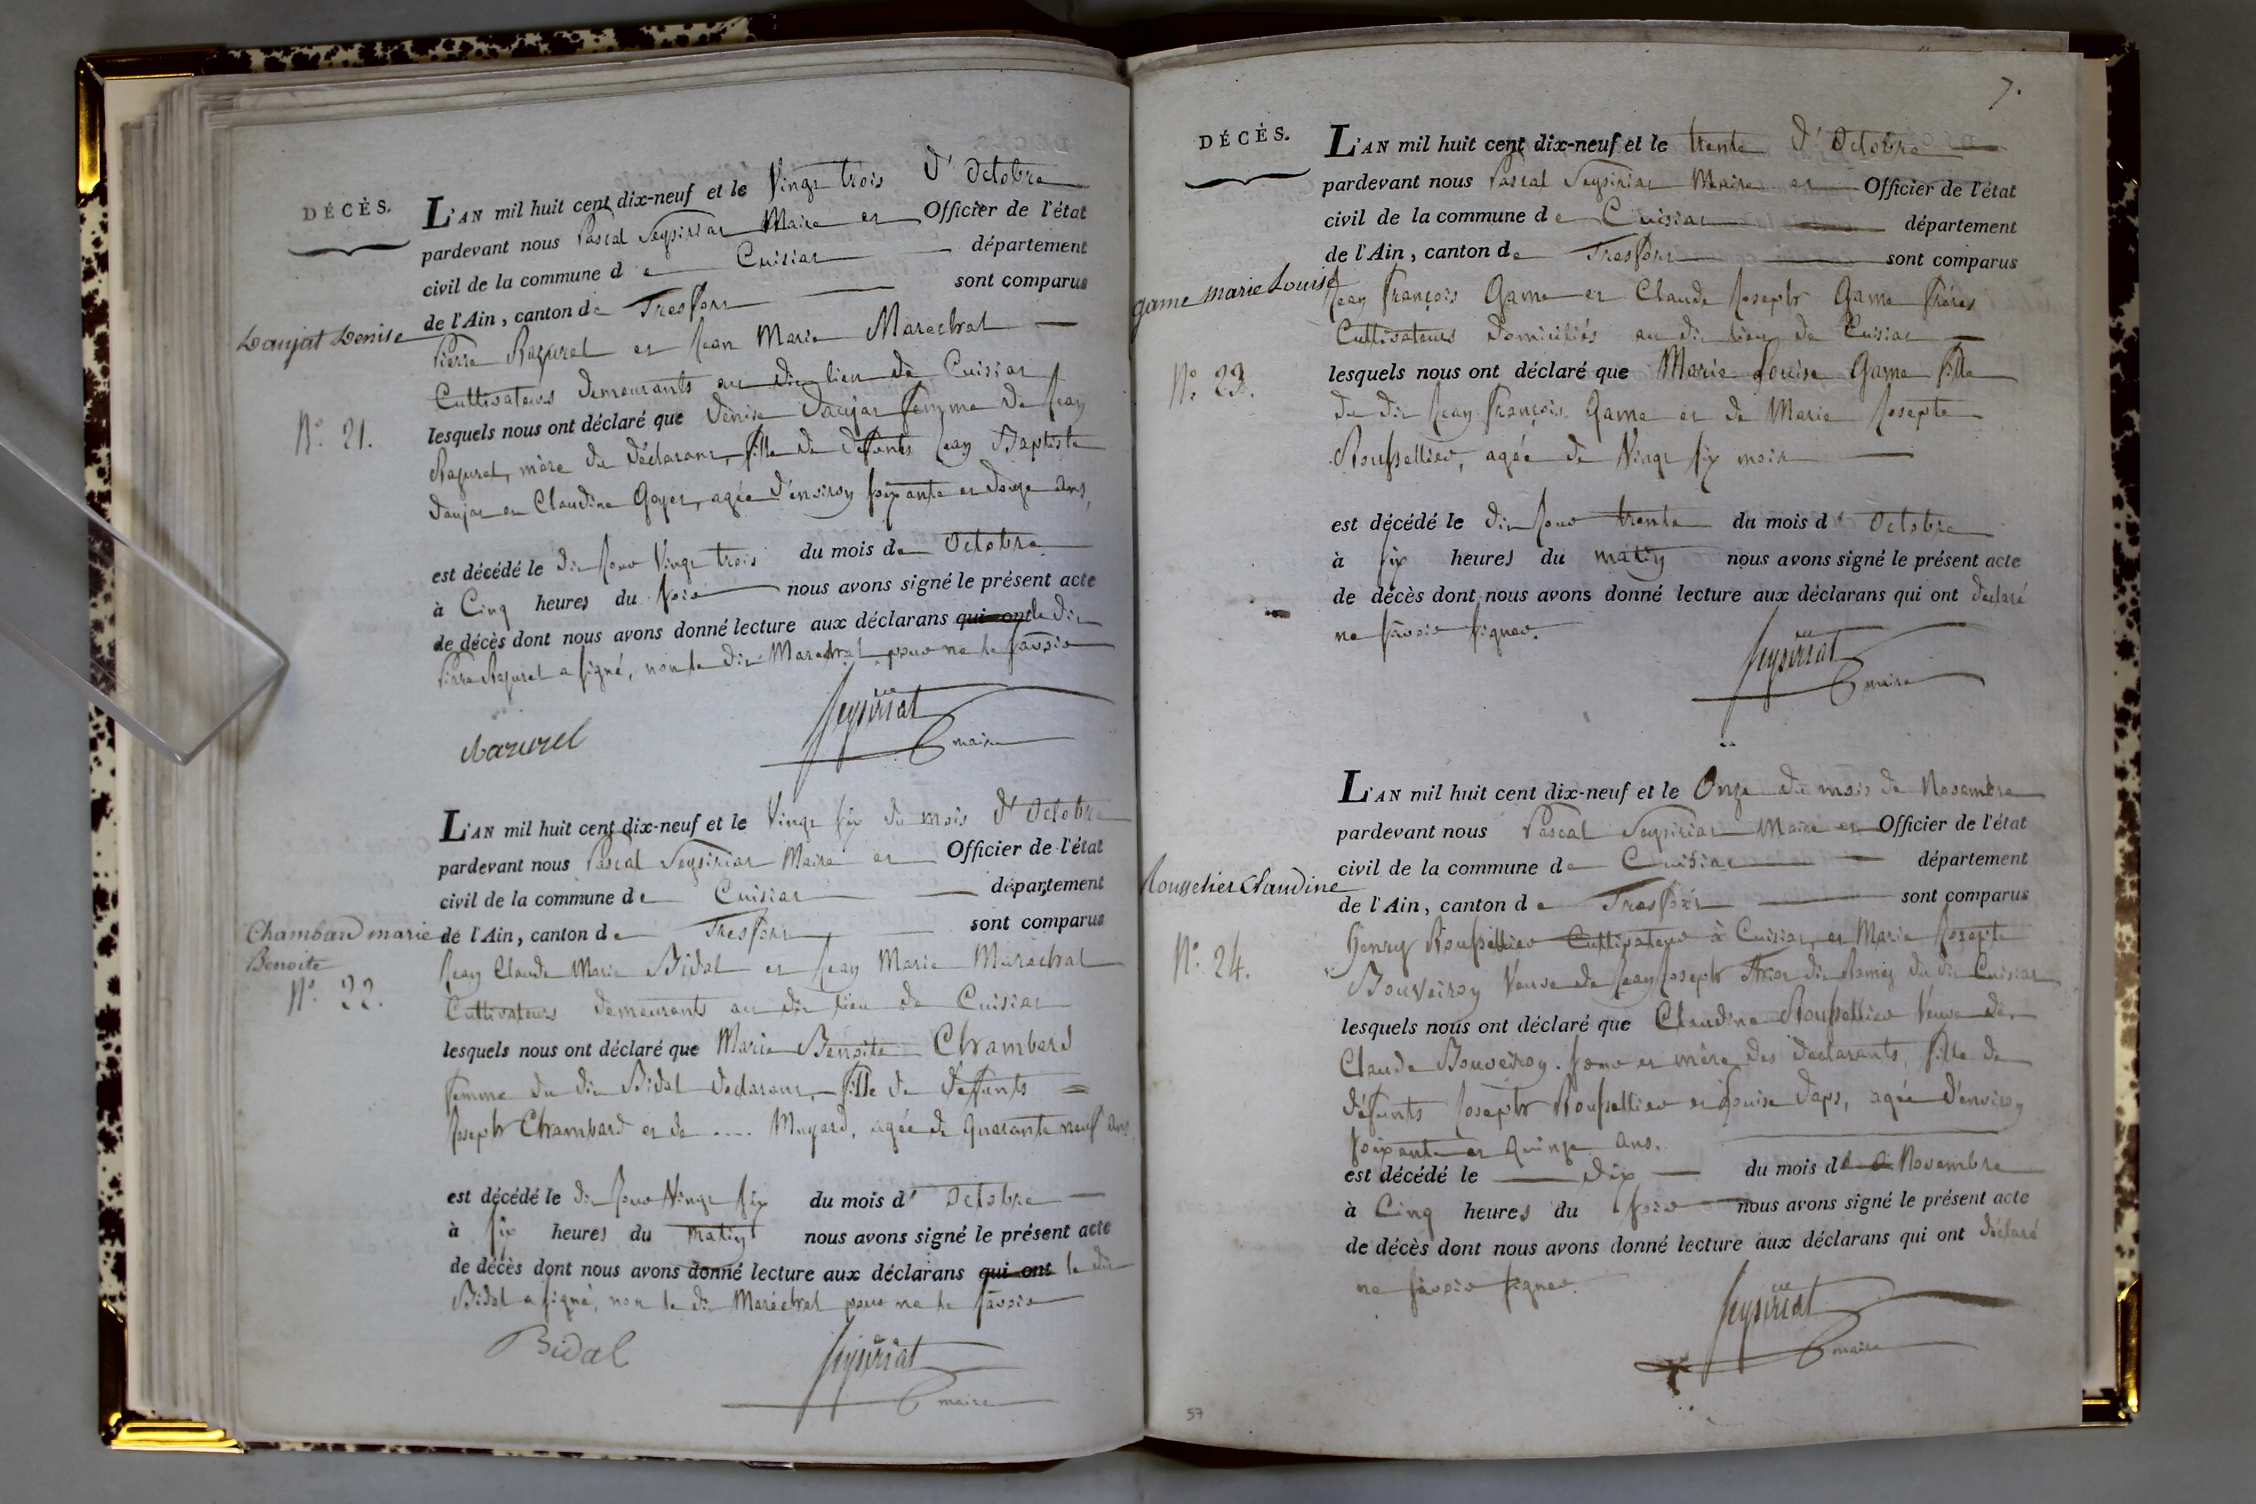 DÉCÈS.
L'AN mil huit cent dix-neuf et le Vingt trois d'Octobre
pardevant nous Pascal Seysiriat Maire et Officier de l'état
civil de la commune de Cuisiat département
de l'Ain, canton de Treffort sont comparus
Daujat Denise
Pierre Razurel et Jean Marie Marechal
Cultivateurs demeurants au dit lieu de Cuisiat
N.º 21.
lesquels nous ont déclaré que Denise Daujat femme de Jean
Razurel, mère du déclarant, fille de deffunts Jean Baptiste
Daujat et Claudine Goyet, agée d'environ soixante et douze ans,
est décédé le dit jour Vingt trois du mois de Octobre
à Cinq heures du soir nous avons signé le présent acte
de décès dont nous avons donné lecture aux déclarans qui ont le dit
Pierre Razurel a signé, non le dit Marechal pour ne le savoir
Razurel
Seysiriat
maire
L'AN mil huit cent dix-neuf et le Vingt six du mois d'Octobre
pardevant nous Pascal Seysiriat Maire et Officier de l'état
civil de la commune de Cuisiat département
Chambard marie
Benoite
de l'Ain, canton de Treffort sont comparus
Jean Claude Marie Bidal et Jean Marie Maréchal
N.º 22.
Cultivateurs demeurants au dit lieu de Cuisiat
lesquels nous ont déclaré que Marie Benoite Chambard
femme du dit Bidal declarant, fille de deffunts
Joseph Chambard et de .... Mugard, agée de Quarante neuf ans,
est décédé le dit jour Vingt six du mois d'Octobre
à six heures du matin nous avons signé le présent acte
de décès dont nous avons donné lecture aux déclarans qui ont le dit
Bidal a signé, non le dit Maréchal pour ne le savoir
Bidal
Seysiriat
maire
7.
DÉCÈS.
L'AN mil huit cent dix-neuf et le trente d'Octobre
pardevant nous Pascal Seysiriat Maire et Officier de l'état
civil de la commune de Cuisiat département
de l'Ain, canton de Treffort sont comparus
game marie Louise
Jean François Game et Claude Joseph Game frères
Cultivateurs domiciliés au dit lieu de Cuisiat
N.º 23.
lesquels nous ont déclaré que Marie Louise Game fille
du dit Jean François Game et de Marie Josepte
Roussellier, agée de Vingt six mois
est décédé le dit jour trente du mois d'Octobre
à six heures du matin nous avons signé le présent acte
de décès dont nous avons donné lecture aux déclarans qui ont déclaré
ne savoir signer.
Seysiriat
maire
L'AN mil huit cent dix-neuf et le Onze du mois de Novembre
pardevant nous Pascal Seysiriat Maire et Officier de l'état
civil de la commune de Cuisiat département
Rousselier Claudine
de l'Ain, canton de Treffort sont comparus
Henry Roussellier Cultivateur à Cuisiat, et Marie Josepte
N.º 24.
Bouveiron Veuve de Jean Joseph dit du dit Cuisiat
lesquels nous ont déclaré que Claudine Roussellier Veuve de
Claude Bouveiron. soeur et mère des déclarants, fille de
défunts Joseph Roussellier et Louise Daps, agée d'environ
soixante et quinze ans.
est décédé le dix du mois de Novembre
à Cinq heures du soir nous avons signé le présent acte
de décès dont nous avons donné lecture aux déclarans qui ont déclaré
ne savoir signer.
Seysiriat
maire
57